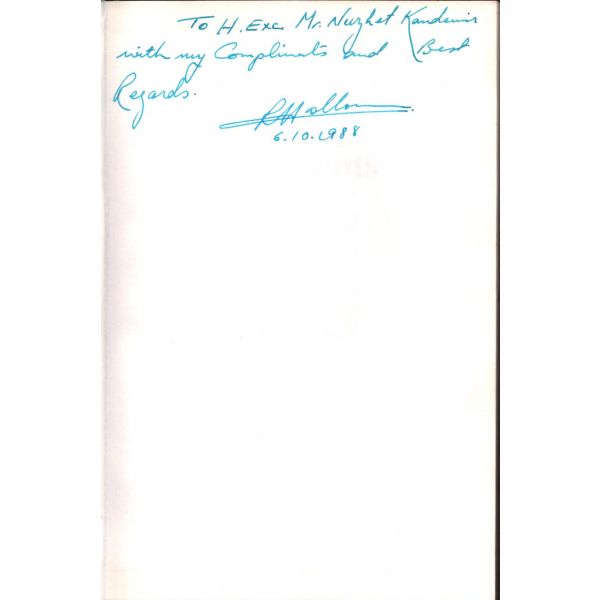 To H. Exc. Mr. Nuzhet Kandemir
with my Compliments and Best
Regards.
6.10.1988